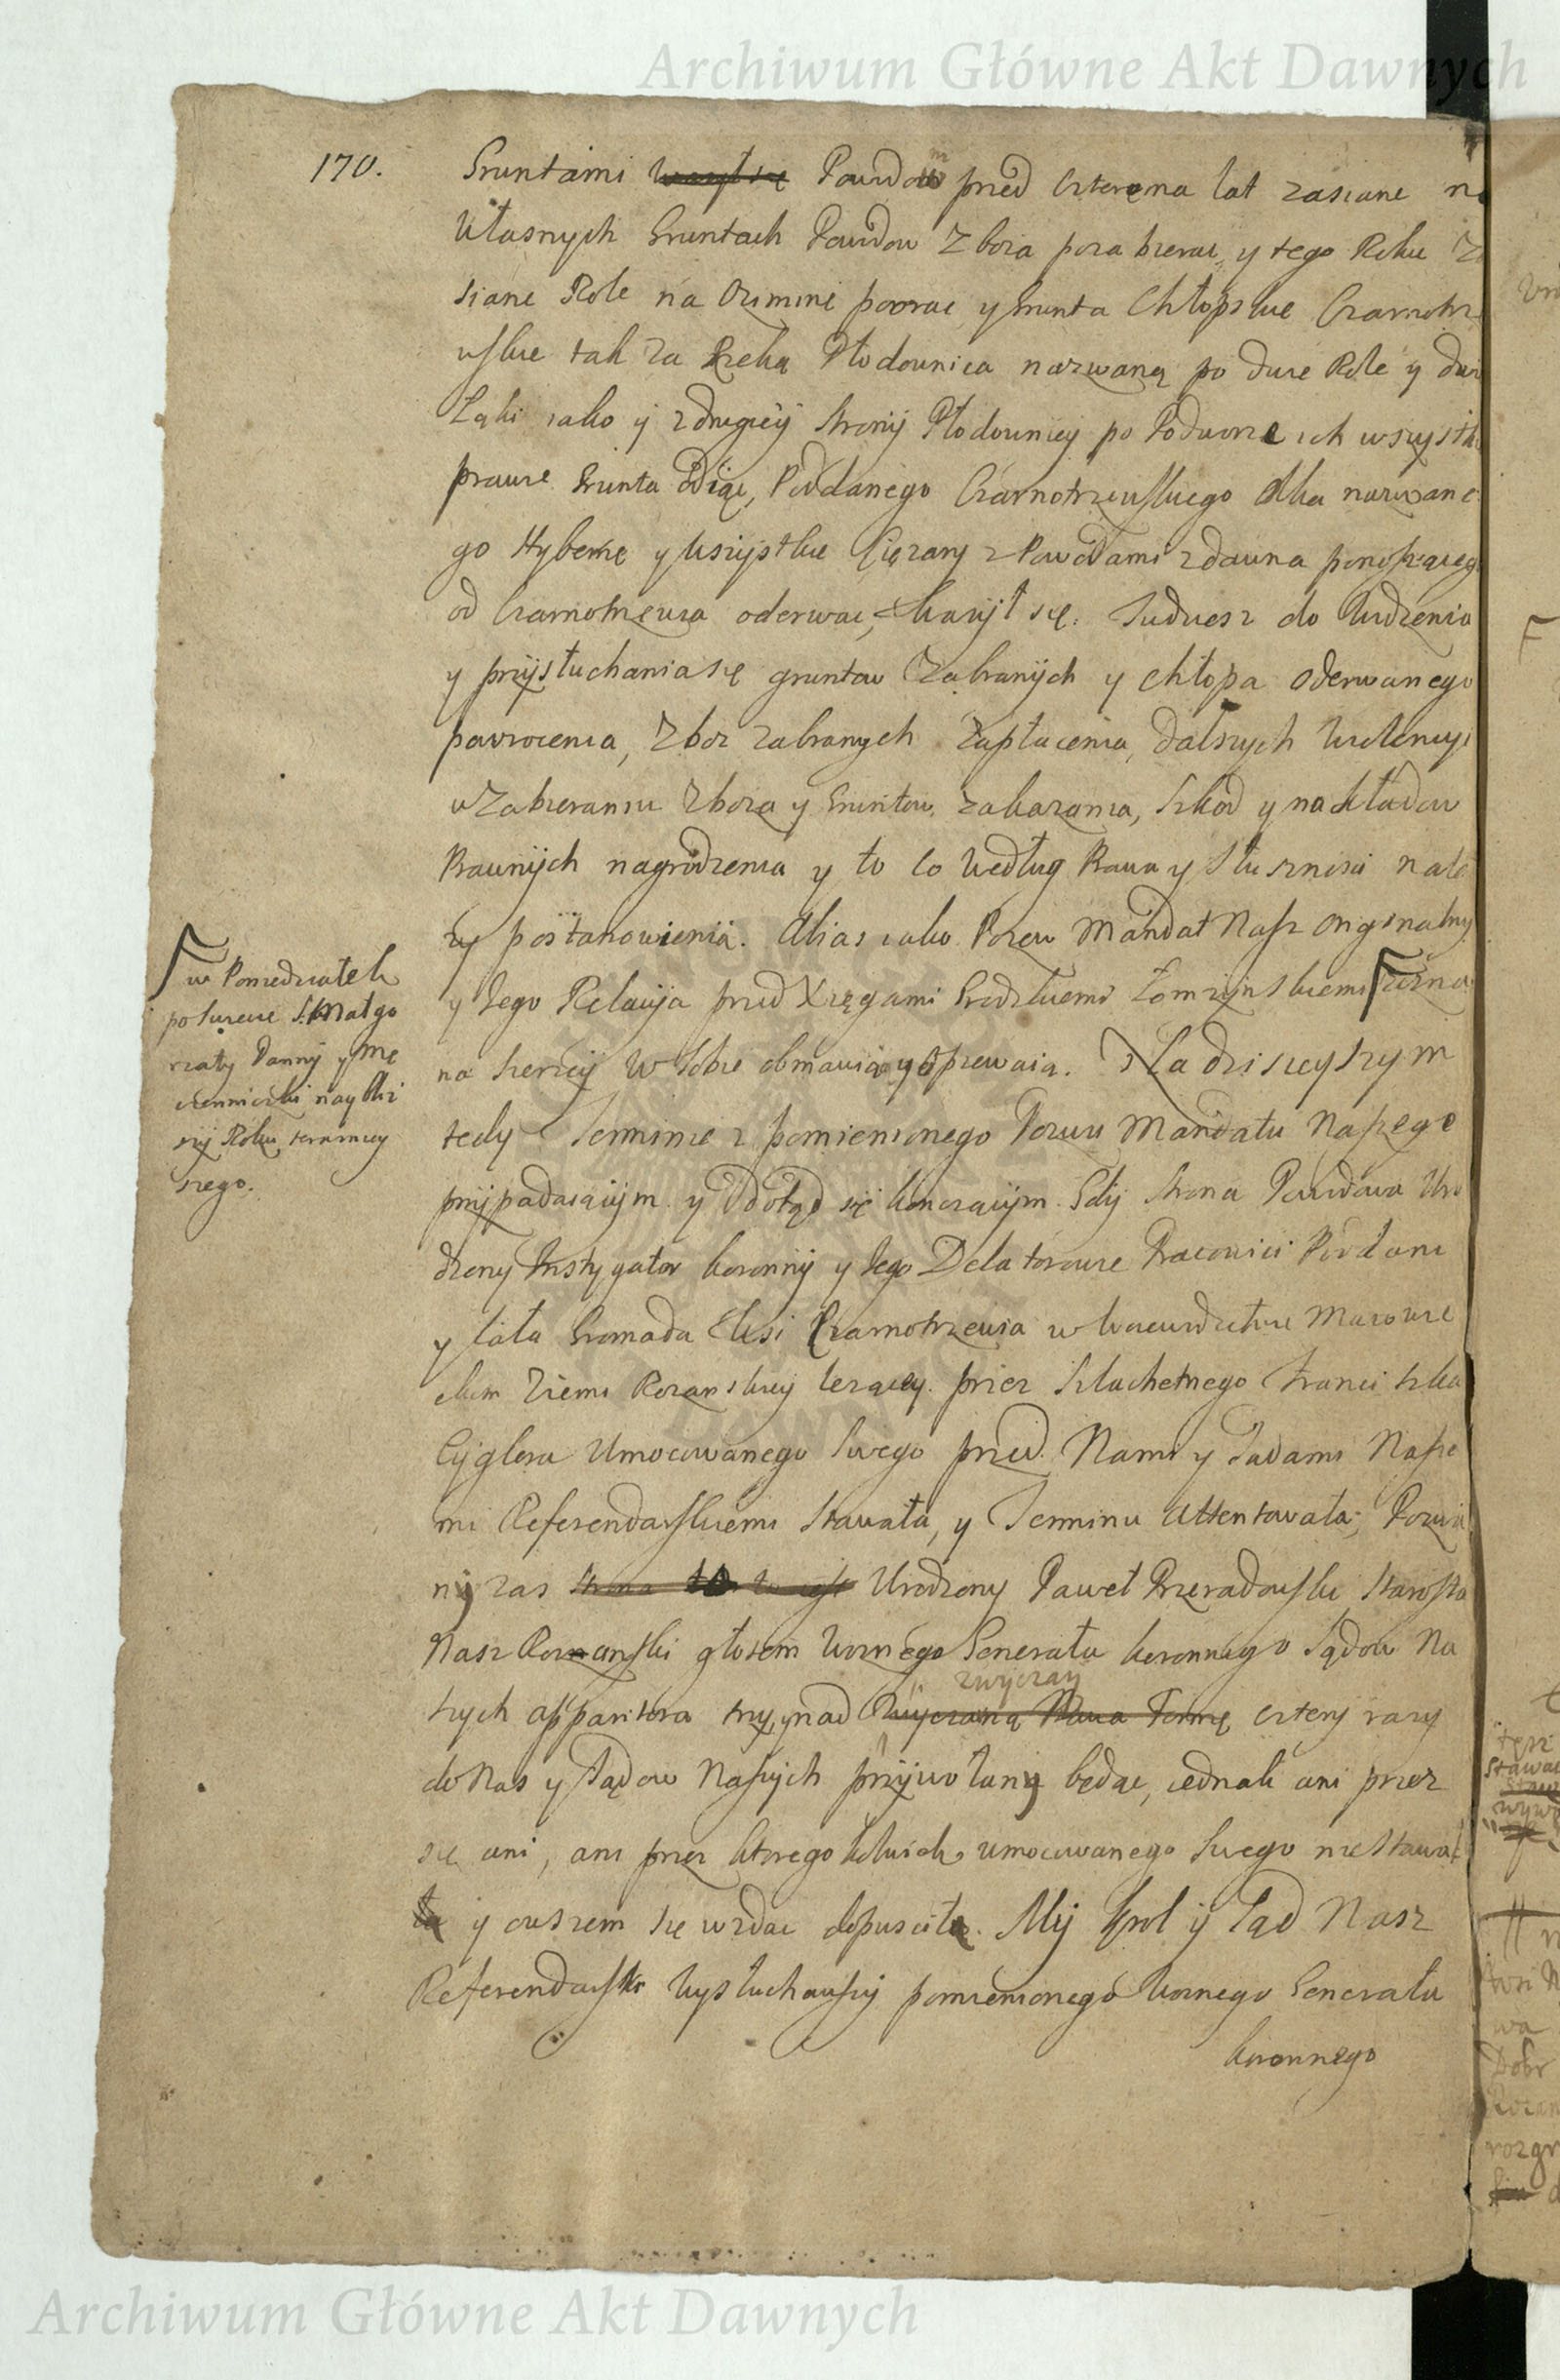 Archiwum Główne Akt Dawnych
170.
Gruntami ważył się Powdom przed czterema lat zasiane na
Własnych Gruntach Powdow Zboza pozabierać, y tego Roku Za
siane Role na Oziminę poorać y Grunta Chłopskie Czarnotrz
ewskie tak za Rzeką Płodownica nazwaną po dwie Role y dwie
Łąki iako y z drugiey Strony Płodownicy po Podworze ich wszystkie
prawie Grunta odiąć, Poddanego Czarnotrzewskiego Olka nazwane
go Hybernę y wszystkie Cięzary z Powodami zdawna ponoszącego
od Czarnotrzewia oderwać, ważył się. Tudziesz do Widzenia
y przysłuchania się gruntow Zabranych y chłopa oderwanego
powrocenia, Zboz zabranych zapłacenia, dalszych Wiolencyi
w Zabieraniu Zboza y Gruntow zakazania, Szkod y nakładow
Prawnych nagrodzenia y to co według Prawa y Słusznosci nale
zy postanowienia. Alias iako Pozew Mandat Nasz Orginalny
y Jego Relacyja przed Xięgami Grodzkiemi Łomzynskiemi zezna
na szerzey w Sobie obmawia y opiewaia. Na dzisieyszym
tedy Terminie z pomienionego Pozwu Mandatu Naszego
przypadaiącym y dotąd się konczącym. Gdy Strona Powodowa Uro
dzony Instygator koronny y Jego Delatorowie Pracowici Poddani
y Cała Gromada Wsi Czarnotrzewia w Woiewodztwie Mazowie
ckim Ziemi Rozanskiey lezącey. przez Szlachetnego Franciszka
Cyglera Umocowanego Swego przed Nami y Sądami Nasze
mi Referendarskiemi Stawała, y Terminu Attentowała; Pozwa
ny zas Urodzony Paweł Przeradowski Starosta
Nasz Rozanski głosem Woznego Generała koronnego Sądow Na
szych apparitora trzy, y nad zwyczay cztery razy
do Nas y Sądow Naszych przywołany będąc, iednak ani przez
się ani, ani przez ktorego kolwiek umocowanego Swego nie Stawał
y owszem się wzdać dopuscił. My Krol y Sąd Nasz
Referendarski Wysłuchawszy pomienionego Woznego Generała
koronnego
w Poniedziałek
po Swięcie S. Małgo
rzaty Panny y Mę
czenniczki naybli
szy Roku terazniey
szego.
Archiwum Główne Akt Dawnych